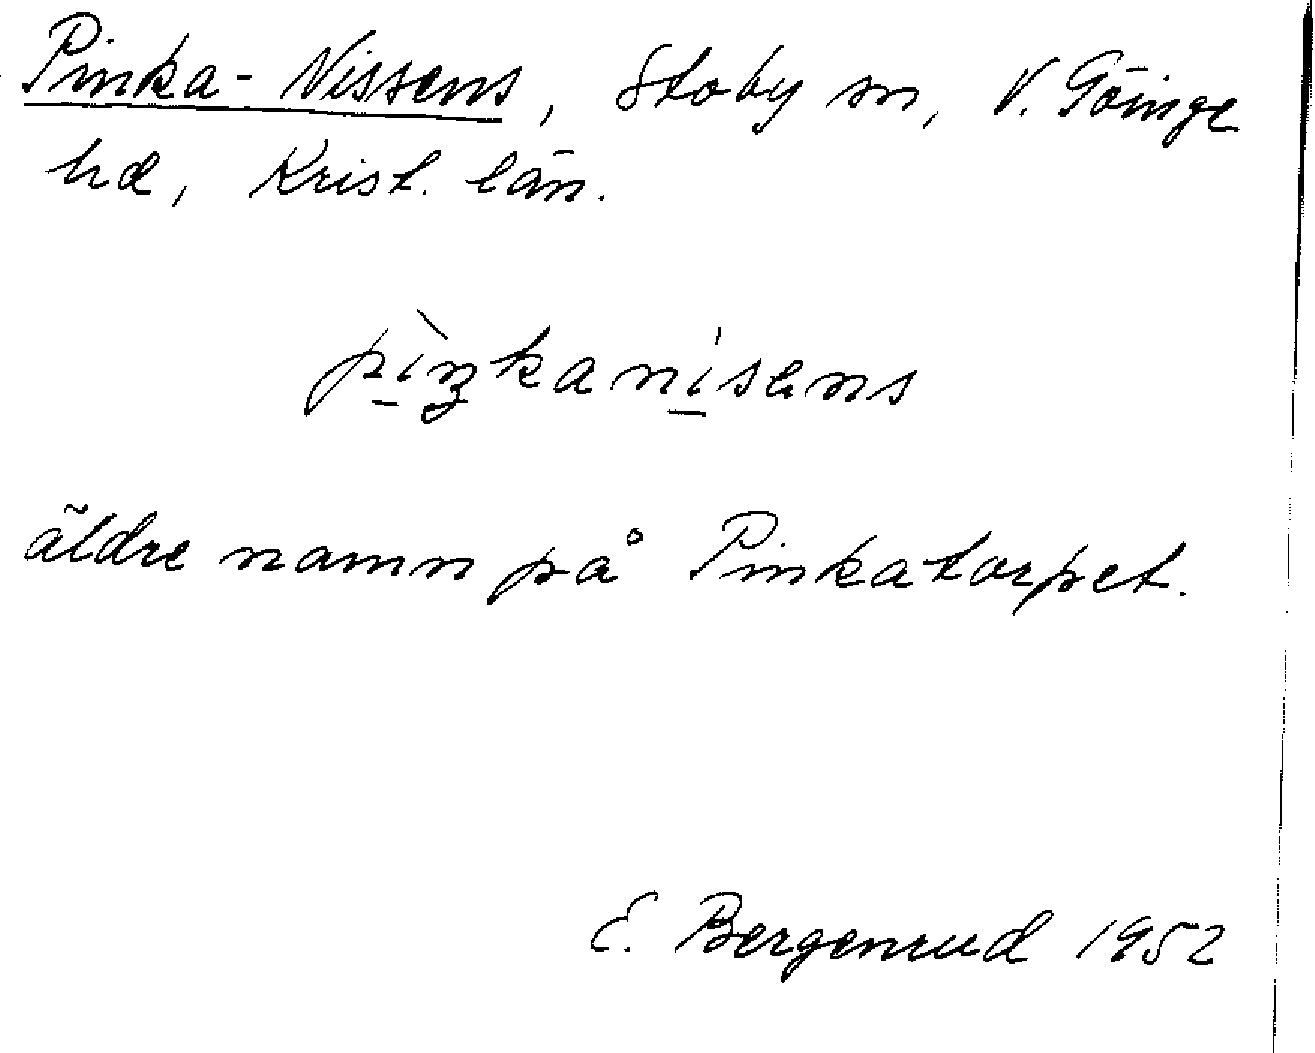 Pinka-Nissens, Stoby sn, V. Göinge
hd, Krist. län.
pì̲ŋkaní̲sens
äldre namn på Pinkatorpet.
E. Bergenrud 1952